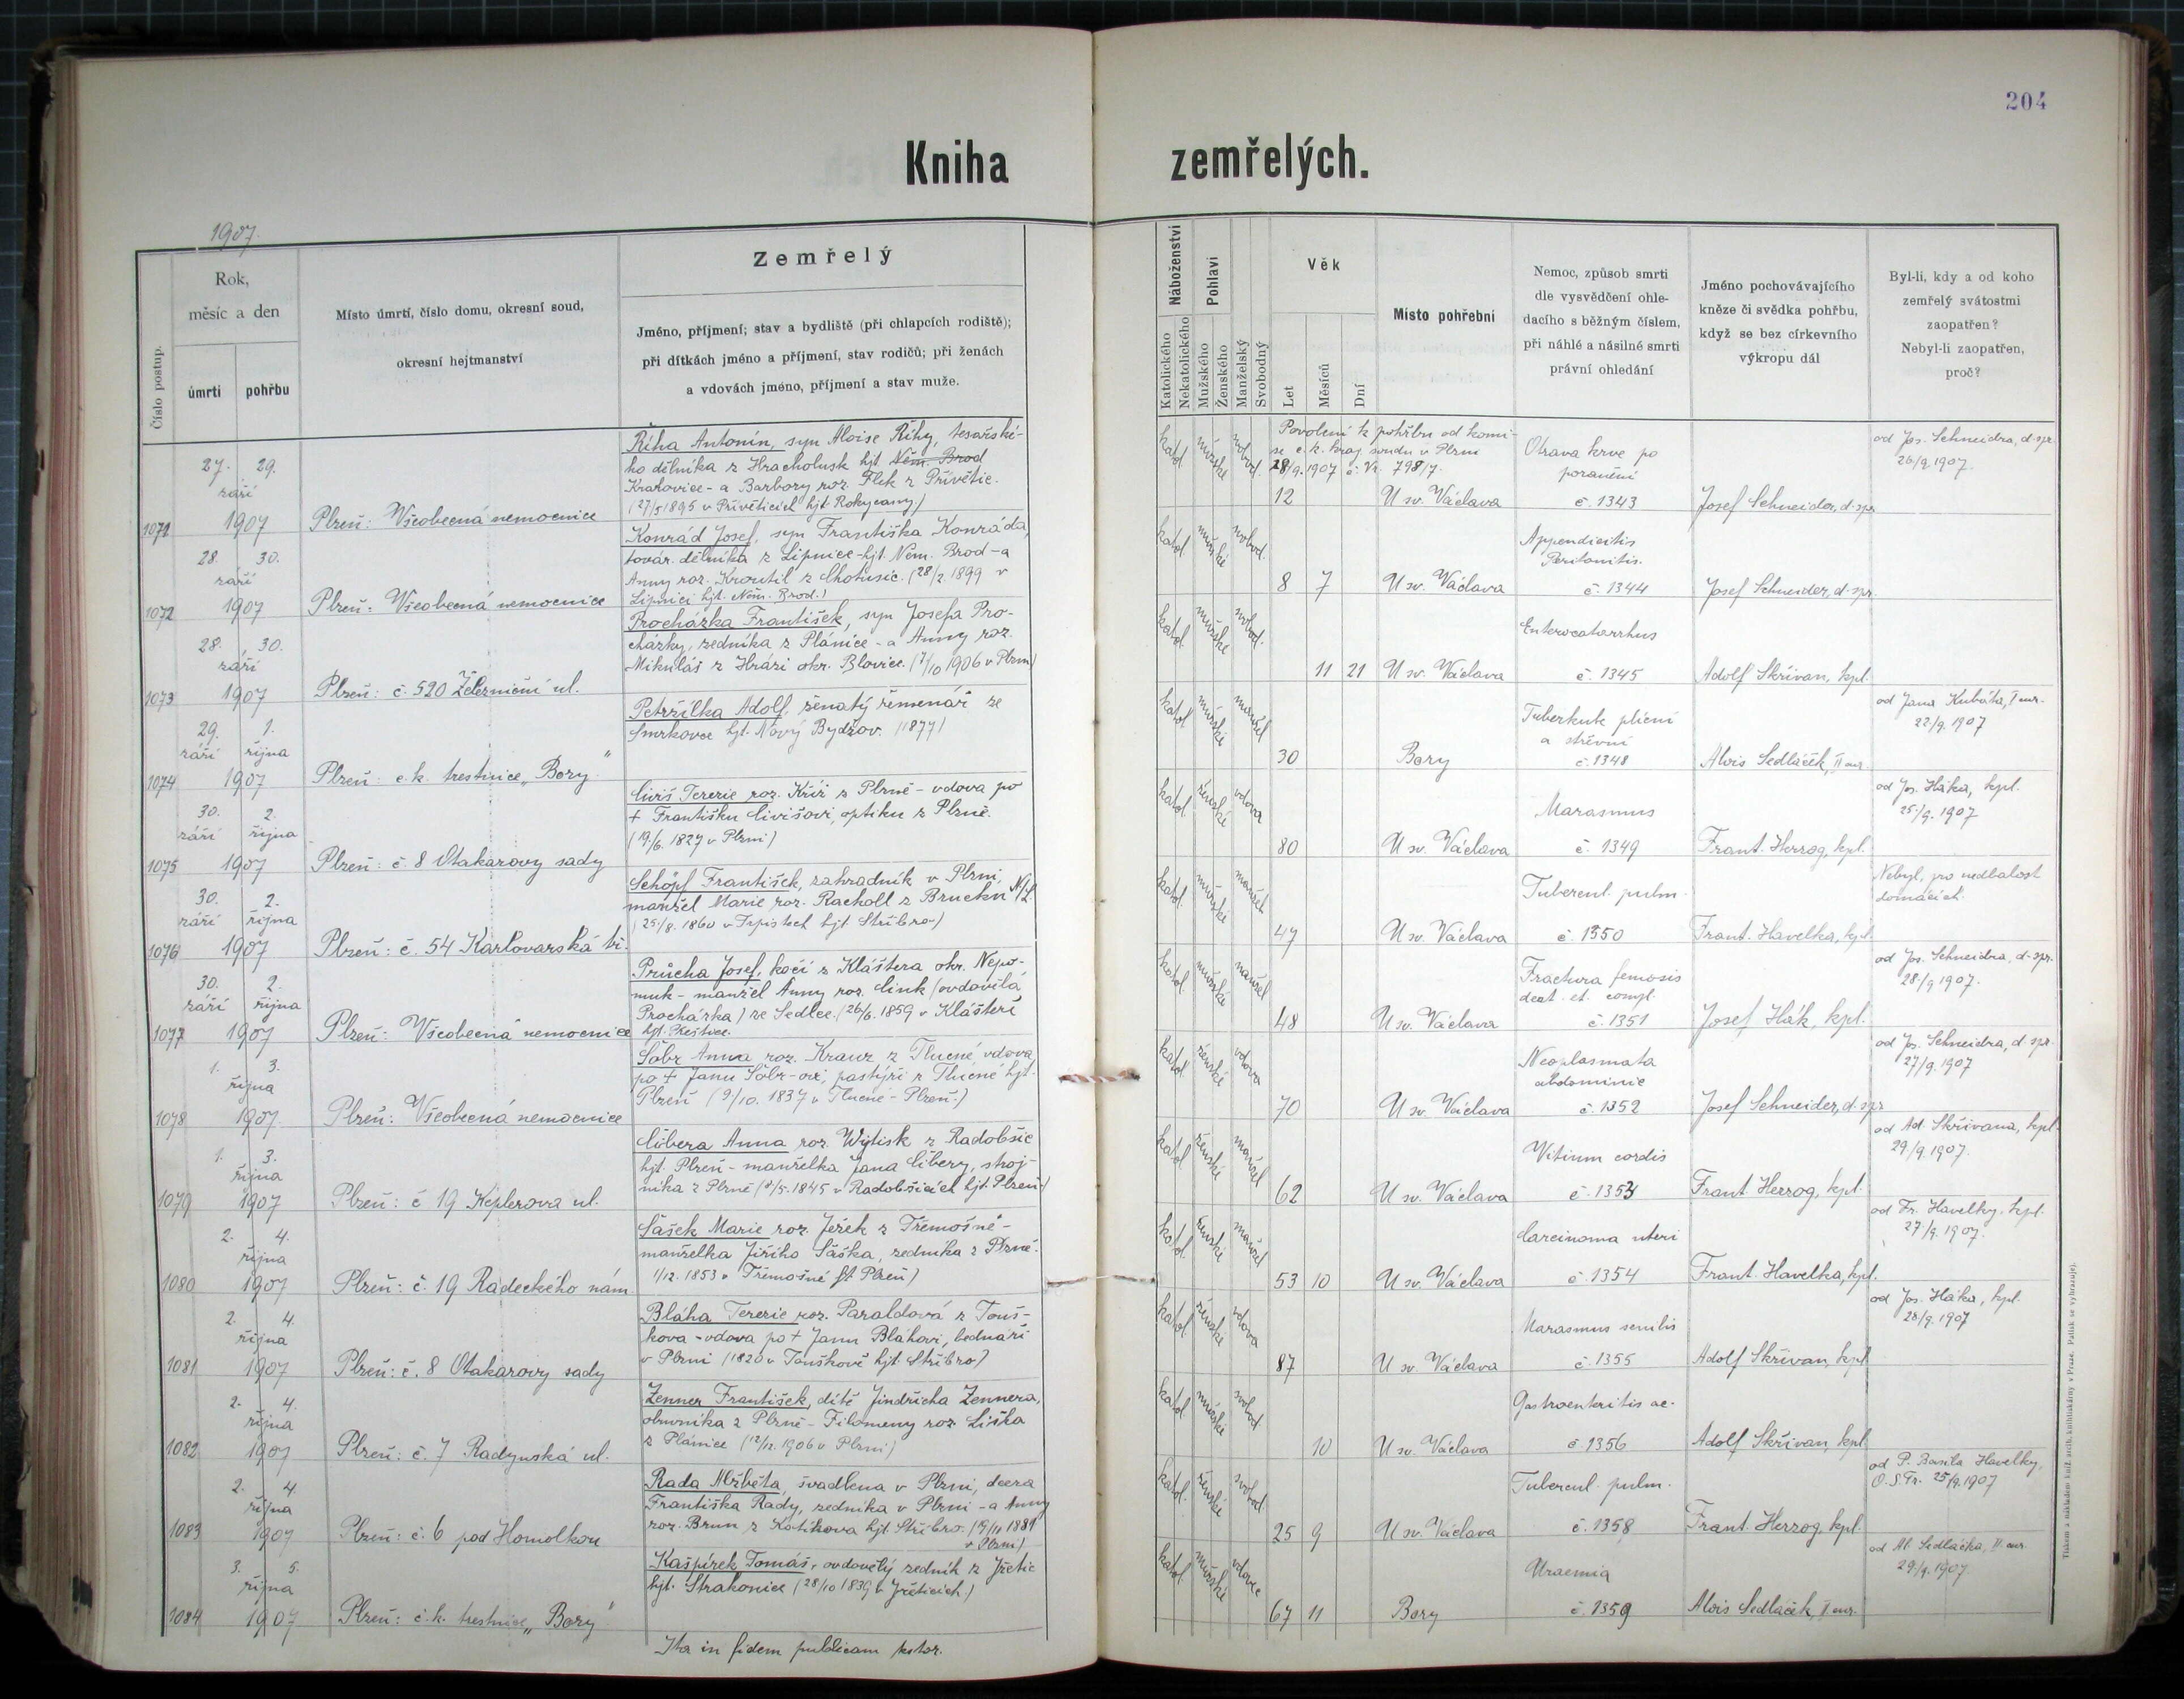 204
Kniha zemřelých.
1907.
Číslo postup.
Rok,
měsíc a den
úmrtí
pohřbu
Místo úmrtí, číslo domu, okresní soud,
okresní hejtmanství
Zemřelý
Jméno, příjmení; stav a bydliště (při chlapcích rodiště);
při dítkách jméno a příjmení, stav rodičů; při ženách
a vdovách jméno, příjmení a stav muže.
Náboženství
Katolického
Nekatolického
Pohlaví
Mužského
Ženského
Manželský
Svobodný
Věk
Let
Měsíců
Dní
Místo pohřební
Nemoc, způsob smrti
dle vysvědčení ohle-
dacího s běžným číslem,
při náhlé a násilné smrti
právní ohledání
Jméno pochovávajícího
kněze či svědka pohřbu,
když se bez církevního
výkropu dál
Byl-li, kdy a od koho
zemřelý svátostmi
zaopatřen?
Nebyl-li zaopatřen,
proč?
1071
27. 29.
září
1907
Plzeň: Všeobecná nemocnice
Říha Antonín, syn Aloise Říhy, tesařské-
ho dělníka z Hracholusk hjt. Něm. Brod
Kralovice - a Barbory roz. Flek z Přívětic.
(27/5 1895 v Přívěticích hjt. Rokycany.)
katol. mužské svobod.
Povolení k pohřbu od komi-
se c. k. kraj. soudu v Plzni
28/9. 1907 č. Vr. 798/7.
12
U sv. Václava
Otrava krve po
poranění
č. 1343
Josef Schneider, d. spr.
od Jos. Schneidra, d. spr.
26/9 1907.
1072
28. 30.
září
1907
Plzeň: Všeobecná nemocnice
Konrád Josef, syn Františka Konráda,
továr. dělníka z Lipnice - hjt. Něm. Brod - a
Anny roz. Kroutil z Chotusic. (28/2. 1899 v
Lipnici hjt. Něm. Brod.)
katol. mužské svobod.
8 7
U sv. Václava
Appendicitis
Peritonitis.
č. 1344
Josef Schneider, d. spr.
1073
28. 30.
září
1907
Plzeň: č. 520 Železniční ul.
Procházka František, syn Josefa Pro-
cházky, zedníka z Plánice - a Anny roz.
Mikuláš z Hrázi okr. Blovice. (7/10 1906 v Plzni)
katol. mužské svobod.
11 21
U sv. Václava
Enterocatarrhus
č. 1345
Adolf Skřivan, kpl.
1074
29. 1.
září října
1907
Plzeň: c. k. trestnice „Bory"
Petržilka Adolf, ženatý řemenář ze
Smrkovce hjt. Nový Bydžov. (1877)
katol. mužské manžel
30
Bory
Tuberkule plicní
a střevní
č. 1348
Alois Sedláček, II cur.
od Jana Kubáta, I cur.
22/9. 1907
1075
30. 2.
září října
1907
Plzeň: č. 8 Otakarovy sady
Čiviš Terezie roz. Kříž z Plzně - vdova po
+ Františku Čivišovi, optiku z Plzně.
(19/6. 1827 v Plzni)
katol. ženské vdova
80
U sv. Václava
Marasmus
č. 1349
Frant. Herzog, kpl.
od Jos. Háka, kpl.
25/9. 1907
1076
30. 2.
září října
1907
Plzeň: č. 54 Karlovarská tř.
Schöpf František, zahradník v Plzni,
manžel Marie roz. Racholl z Brucku N/L.
(25/8. 1860 v Trpistech hjt. Stříbro)
katol. mužské manžel
47
U sv. Václava
Tubercul. pulm.
č. 1350
Frant. Havelka, kpl.
Nebyl, pro nedbalost
domácích.
1077
30. 2.
září října
1907
Plzeň: Všeobecná nemocnice
Průcha Josef, kočí z Kláštera okr. Nepo-
muk - manžel Anny roz. Cink (ovdovělá
Procházka) ze Sedlce. (26/6. 1859 v Klášteři
hjt. Přeštice.
katol. mužské manžel
48
U sv. Václava
Fractura femosis
deat. et. compl.
č. 1351
Josef Hák, kpl.
od Jos. Schneidra, d. spr.
28/9 1907.
1078
1. 3.
října
1907.
Plzeň: Všeobecná nemocnice
Sóbr Anna roz. Krauz z Tlucné, vdova
po + Janu Sóbr-ovi, pastýři z Tlucné hjt.
Plzeň (9/10. 1837 v Tlucné - Plzeň.)
katol. ženské vdova
70
U sv. Václava
Neoplasmata
abdominis
č. 1352
Josef Schneider, d. spr.
od Jos. Schneidra, d. spr.
27/9. 1907
1079
1. 3.
října
1907
Plzeň: č 19 Keplerova ul.
Cibera Anna roz. Wytisk z Radobšic
hjt. Plzeň - manželka Jana Cibery, stroj-
níka z Plzně (9/5. 1845 v Radobšicích hjt. Plzeň.)
katol. ženské manžel
62
U sv. Václava
Vitium cordis
č. 1353
Frant. Herzog, kpl.
od Ad. Skřivana, kpl.
29/9. 1907.
1080
2. 4.
října
1907
Plzeň: č. 19 Radeckého nám.
Sášek Marie roz. Ježek z Třemošné -
manželka Jiřího Sáška, zedníka z Plzně.
1/12. 1853 v Třemošné hjt. Plzeň)
katol. ženské manžel
53 10
U sv. Václava
Carcinoma uteri
č. 1354
Frant. Havelka, kpl.
od Fr. Havelky, kpl.
27/9. 1907.
1081
2. 4.
října
1907
Plzeň: č. 8 Otakarovy sady
Bláha Terezie roz. Paraldová z Touš-
kova - vdova po + Janu Bláhovi, bednáři
v Plzni (1820 v Touškově hjt. Stříbro)
katol. ženské vdova
87
U sv. Václava
Marasmus senilis
č. 1355
Adolf Skřivan, kpl.
od Jos. Háka, kpl.
28/9. 1907
1082
2. 4.
října
1907
Plzeň: č. 7 Radyňská ul.
Zenner František, dítě Jindřicha Zennera,
obuvníka z Plzně - Filomeny roz. Liška
z Plánice (12/12. 1906 v Plzni)
katol. mužské svobod.
10
U sv. Václava
Gastroenteritis ac.
č. 1356
Adolf Skřivan, kpl.
1083
2. 4.
října
1907
Plzeň: č. 6 pod Homolkou
Rada Alžběta, švadlena v Plzni, dcera
Františka Rady, zedníka v Plzni - a Anny
roz. Brun z Kotíkova hjt. Stříbro. (19/11 1881
v Plzni)
katol. ženské svobod.
25 9
U sv. Václava
Tubercul. pulm.
č. 1358
Frant. Herzog, kpl.
od P. Basila Havelky,
O. S. Fr. 25/9. 1907
1084
3. 5.
října
1907
Plzeň: c. k. trestnice „Bory"
Kašpírek Tomáš, ovdovělý zedník z Jřetic
hjt. Strakonice (28/10 1839 v Jřeticích)
katol. mužské vdovec
67 11
Bory
Uraemia
č. 1359
Alois Sedláček, II cur.
od Al. Sedláčka, II cur.
29/9. 1907.
Ita in fidem publicam testor.